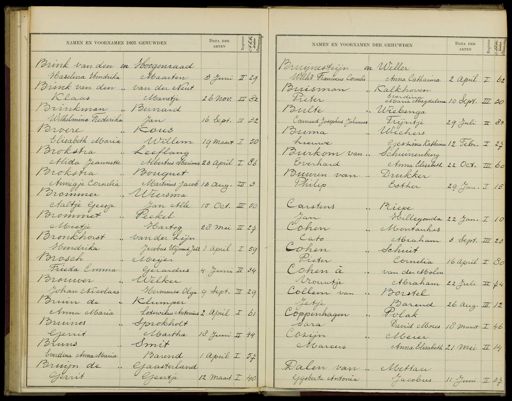 NAMEN EN VOORNAMEN DER GEHUWDEN
DATA DER AKTEN
Brink van den en Hoogenraad
Hendrika Maarten 3 Juni II 29
Brink van den " van der Neut
Klaas Marretje 26 Nov. III 82
Brinkman " Burund
Wilhelmina Frederika Jan 16 Sept. III 22
Broere " Kous
Elisabeth Maria Willem 19 Maart I 20
Brokstra
Alida Jeannette 20 April I 86
Brokstra " Bouquet
Annaatje Cornelia Martinus Jacob 10 Aug. III 3
Brommer " Wiersma
Jan 15 Oct. III 50
Brommet " Peekel
Meetje Hartog 28 Mei II 27
Bronkhorst " van der Lijn
Hendrika 1 April I 59
Brosch " Meijer
Frieda Emma Gerardus 4 Juni II 34
Brouwer " Wilker
Johan Nicolaas Hermannes 9 Sept. III 29
Bruin de " Klumper
Anna Maria Lodewikus Antonius 2 April I 61
Bruins " Sprokholt
Gerrit Martha 18 Juni II 44
Bruins " Smit
Anna Maria Barend 1 April I 57
Bruijn de " Gaasterland
Gerrit Geertje 12 Maart I 40
NAMEN EN VOORNAMEN DER GEHUWDEN
DATA DER AKTEN
Bruynesteijn en Willer
Franciscus Cornelis Anna Catharina 2 April I 62
Buisman " Kalkhoven
Pieter Maria Magdalena 10 Sept. III 30
Bulte " Wiebenga
Josephus Johannes Trijntje 29 Juli II 82
Buma " Wiechers
12 Febr. I 27
Burkom van " Schuurenburg
Everhard Anna Elisabeth 22 Oct. III 60
Buuren van " Drukker
Philip Esther 29 Jan. I 15
Carstens " Riepe
Jan Hillegonda 22 Jan. I 10
Cohen " Montanhes
Cato Abraham 3 Sept. III 23
Cohen " Schuit
Pieter Cornelia 16 April I 30
Cohen à " van der Molen
Vrouwtje Abraham 22 Juli II 74
Collem van " Borstel
Jetje Barend 26 Aug. III 12
Coppenhagen " Polak
Sara David Mozes 10 Maart I 46
Cosijn " Meier
Marcus Anna Elisabeth 21 Mei II 14
Dalen van " Mettau
Gijsberta Antonia Jacobus 11 Juni II 27